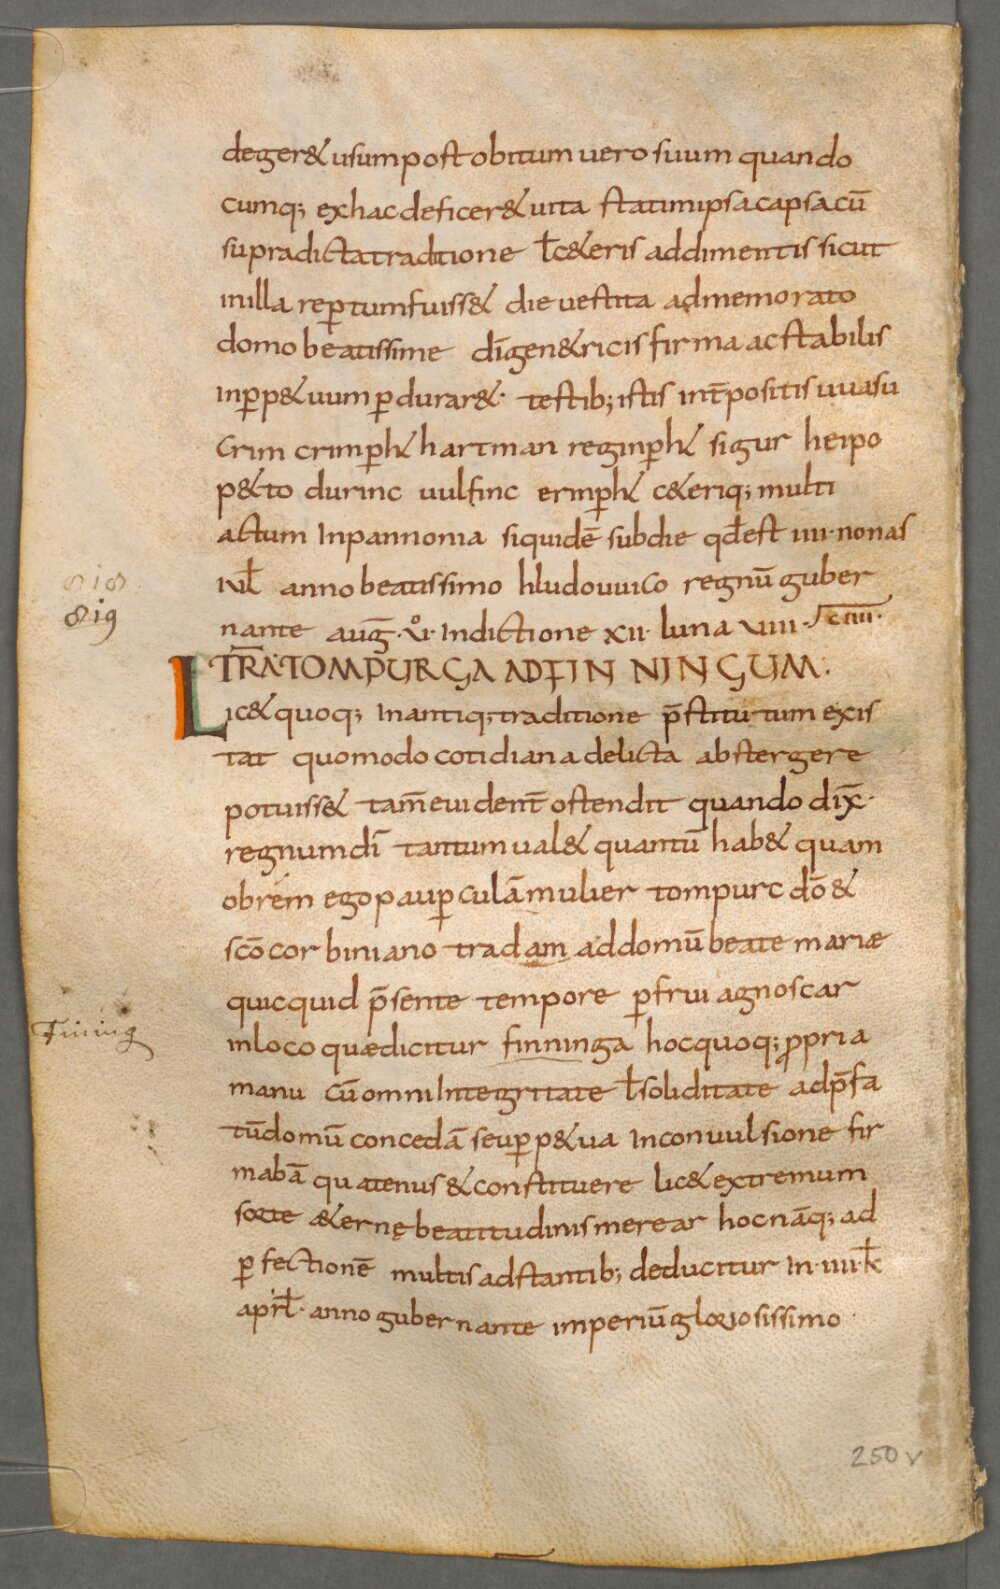 deger& usum post obitum uero suum quando
cumq; ex hac deficer& uita statim ipsa capsa cū
supradicta traditione ł c&eris addimentis sicut
in illa reꝑtum fuiss& die uestita ad memorato
domo beatissime dīgen&ricis firma ac stabilis
in ꝑp&uum ꝑdurar&· testib; istis int̄positis uuasu
Crim crimꝑh̄t hartman reginꝑh̄t sigur heipo
p&to durinc uulfinc ermꝑh̄t c&eriq; multi
actum In pannonia siquidē sub die qđ est IIII· nonas
Iuł anno beatissimo hludouuico regnū guber
nante auḡ· VI· Indictione XII· luna VIIII·
819
TRA. TOMPURGA AD FINNINGUM.
Lic& quoq; In antiq; traditione p̄stitutum exis
tat quomodo cotidiana delicta abstergere
potuiss& tam̄ euident̄ ostendit quando dix̄·
regnum dī tantum ual& quantū hab& quam
obrem ego paupercula mulier tompurc dō &
scō corbiniano tradam ad domū beate mariæ
quicquid p̄sente tempore ꝑfrui agnoscar
Fining
in loco quæ dicitur finninga hoc quoq; ꝓpria
manu cū omni Integritate ł soliditate ad p̄fa
tū domū concedā seu ꝑp&ua Inconuulsione fir
mabā quatenus & constituere lic& extremum
sorte æ&ernę beatitudinis merear hoc nāq; ad
ꝑfectionē multis adstantib; deducitur In· IIII· k̄
april̄· anno gubernante imperiū gloriosissimo
250v